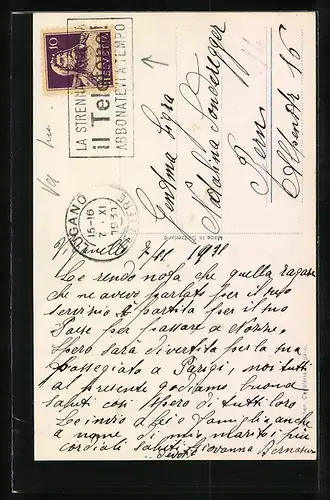 10
HELVETIA
LA STRENNA
il Tel
ABBONATEVI A TEMPO
LUGANO
15-16
7. XI
1931
Gentma Sigra
Natalina Sonderegger
Bern
Alpenstr 15
Made in Switzerland
7 XI 1931
Le rendo nota che quella ragazza
che ne avevo parlato per il suo
servizio è partita per il suo
Paese per passare a Nozze.
Spero sarà divertita per la sua
Passegiata a Parigi, noi tutti
al presente godiamo buona
salute così spero di tutti loro
Le invio a Lei e Famiglia anche
a nome di mio marito i più
cordiali saluti Giovanna Bernasconi